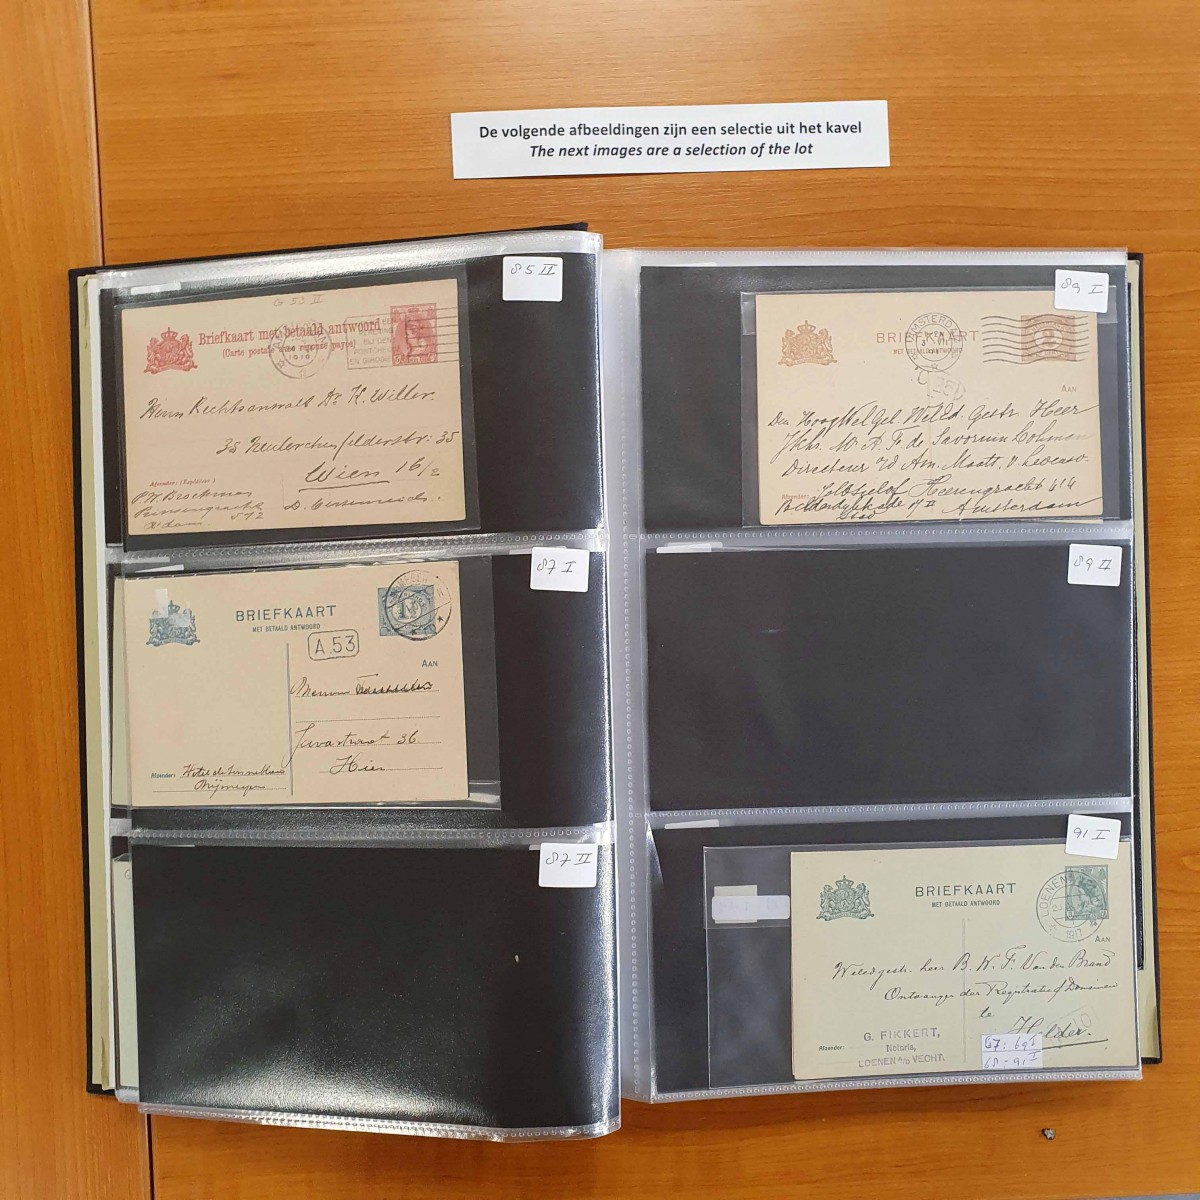 De volgende afbeeldingen zijn een selectie uit het kavel
The next images are a selection of the lot
85 II
G 53 II
Briefkaart met betaald antwoord
(Carte postale avec réponse payée)
Herrn Rechtsanwalt Dr. K. Willer.
35 35
Wien 16/2
Afzender: (Expéditeur)
Prinsengracht
A'dam. 572
87 I
BRIEFKAART
MET BETAALD ANTWOORD
A.53
AAN
Javastraat 36
Hier
Afzender:
Nijmegen
87 II
89 I
BRIEFKAART
MET BETAALD ANTWOORD
AMSTERDAM
AAN
Den HoogWelGel. Gestr. Heer
Jkhr. Mr. A. F. de Savornin Lohman
Directeur v/d Am. Maatt. v. Levensv.
Afzender:
Heerengracht
Amsterdam
89 II
91 I
BRIEFKAART
MET BETAALD ANTWOORD
LOENEN
1917
AAN
Weledgestr. heer B. W. F. Van den Brand
Ontvanger der Registratie & Domeinen
te
Helder.
G. FIKKERT,
Notaris,
LOENEN a/d VECHT.
Afzender:
67: 69 I
68 - 91 I